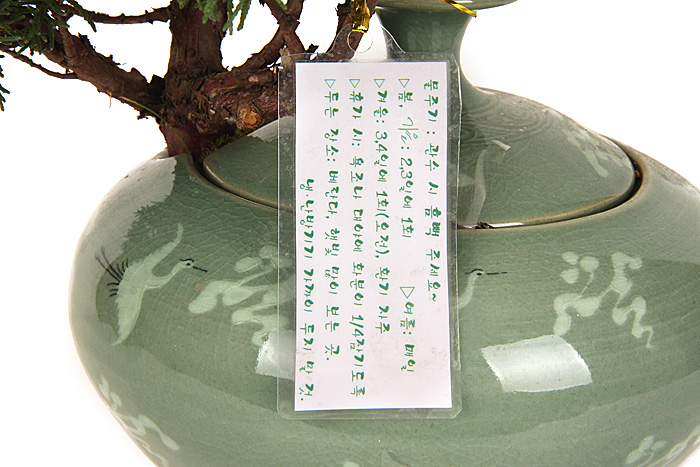 물주기 : 관수 시 흠뻑 주세요~
▷봄, 가을: 2,3일에 1회 ▷여름: 매일
▷겨울: 3,4일에 1회(오전), 환기 자주
▷휴가 시: 욕조나 대야에 화분이 1/4잠기도록
▷두는 장소: 베란다, 햇빛 많이 보는 곳.
냉.난방기기 가까이 두지 말 것.